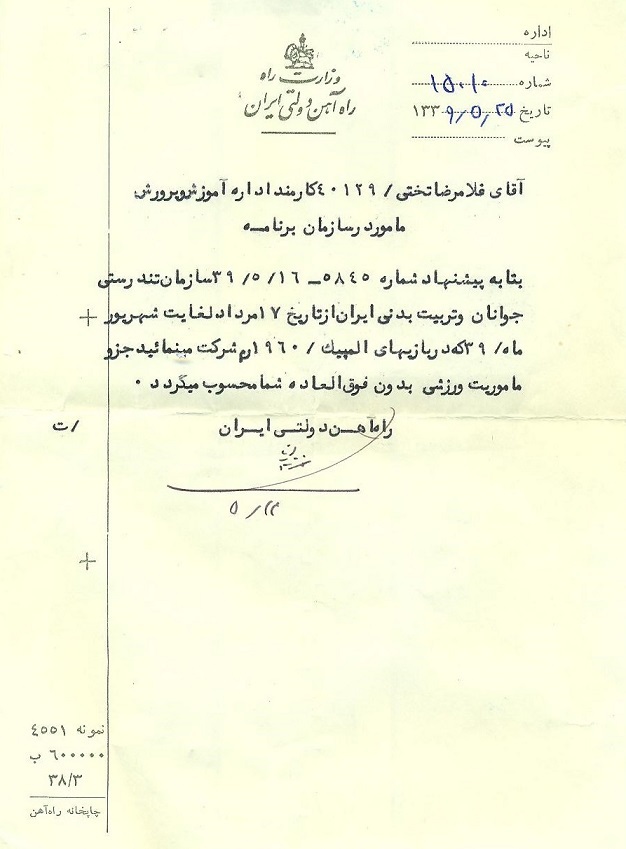 اداره
ناحیه
شماره ۱۵۰۱۰
تاریخ ۱۳۳۹/۵/۲۵
پیوست
وزارت راه
راه آهن دولتی ایران
آقای غلامرضا تختی / ٤٠١٢٩ کارمند اداره آموزش و پرورش
مامور در سازمان برنامه
بنا به پیشنهاد شماره ٥٨٤٥ – ٣٩/٥/١٦ سازمان تندرستی
جوانان و تربیت بدنی ایران از تاریخ ١٧ مرداد لغایت شهریور
ماه / ٣٩ که در بازیهای المپیک / ١٩٦٠ رم شرکت مینمائید جزو
ماموریت ورزشی بدون فوق العاده شما محسوب میگردد ٠
راه آهن دولتی ایران
/ت
۵/۲۴
نمونه ٤٥٥١
٦٠٠٠٠٠ ب
٣٨/٣
چاپخانه راه آهن